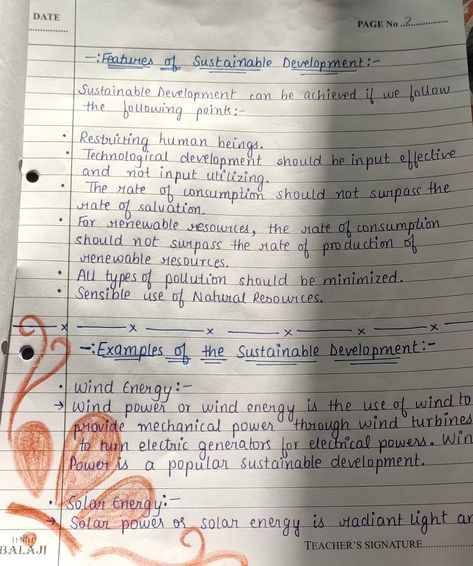 DATE
PAGE No ..2..........
-:Features of Sustainable Development:-
Sustainable Development can be achieved if we follow
the following points:-
• Restricting human beings.
• Technological development should be input effective
and not input utilizing.
• The rate of consumption should not surpass the
rate of salvation.
• For renewable resources, the rate of consumption
should not surpass the rate of production of
renewable resources.
• All types of pollution should be minimized.
• Sensible use of Natural Resources.
x — x — x — x — x — x
-:Examples of the Sustainable Development:-
• Wind Energy:-
→ Wind power or wind energy is the use of wind to
provide mechanical power through wind turbines
to turn electric generators for electrical powers. Win
Power is a popular sustainable development.
• Solar Energy:-
→ Solar power or solar energy is radiant light an
BALAJI
TEACHER'S SIGNATURE..............